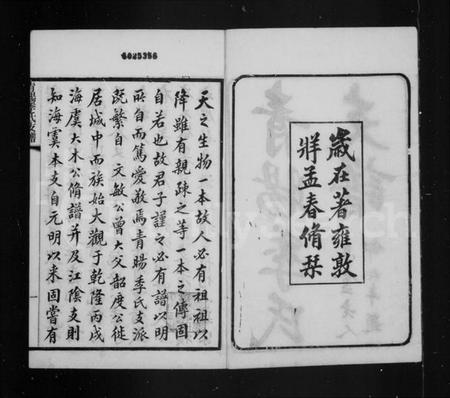 6025356
歲在著雍敦
牂孟春脩栞
天之生物一本故人必有祖祖以
降雖有親疎之等一本之傳固
自若也故君子謹之必有譜以明
所自而篤愛敬焉青暘季氏支派
旣繁自 文敏公曾大父韶度公徙
居城中而族始大觀于乾隆丙戌
海虞大木公脩譜并及江陰支則
知海虞本支自元明以來固嘗有
青暘季氏支譜